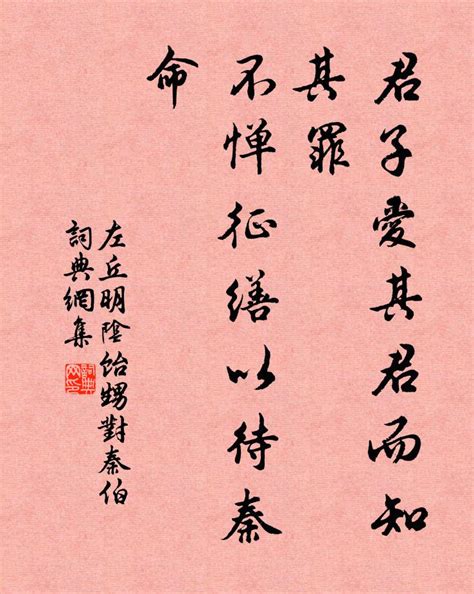 君子愛其君而知
其罪
不惮征繕以待秦
命
左丘明陰飴甥對秦伯
詞典網集